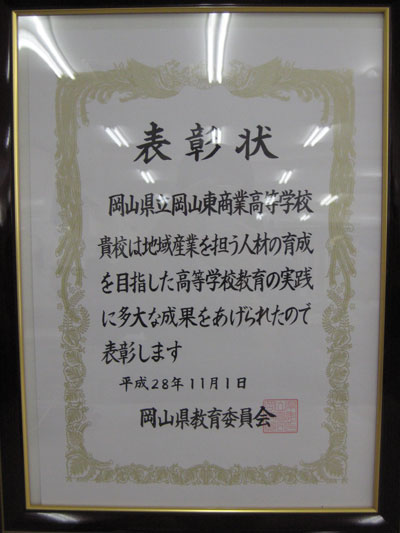 表彰状
岡山県立岡山東商業高等学校
貴校は地域産業を担う人材の育成
を目指した高等学校教育の実践
に多大な成果をあげられたので
表彰します
平成28年11月1日
岡山県教育委員会